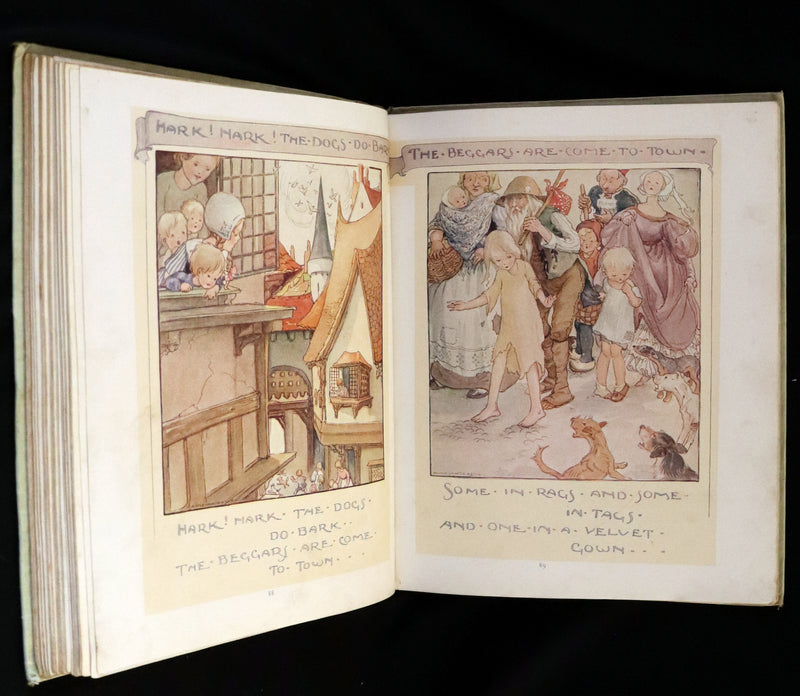 HARK! HARK! THE·DOGS·DO·BARK
HARK! HARK· THE·DOGS·
DO·BARK··
THE·BEGGARS·ARE·COME·
TO·TOWN···
THE·BEGGARS·ARE·COME·TO·TOWN·
SOME·IN·RAGS·AND·SOME·
IN·TAGS·
AND·ONE·IN·A·VELVET·
GOWN···